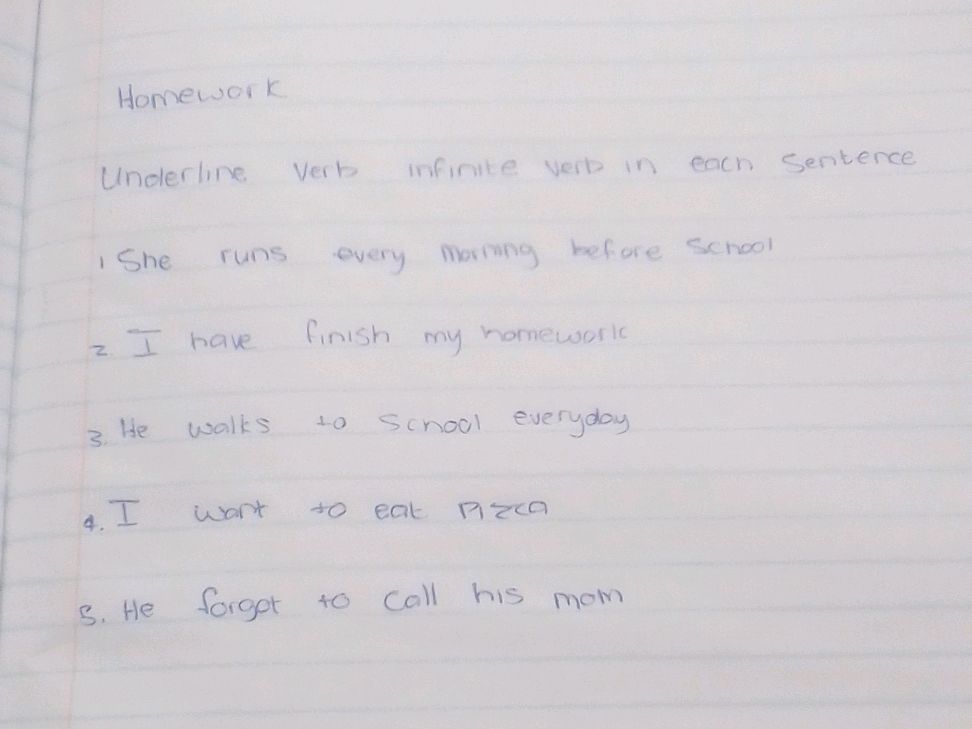 Homework
Underline verb infinite verb in each sentence
1 She runs every morning before school
2. I have finish my homework
3. He walks to school everyday
4. I want to eat pizza
5. He forgot to call his mom